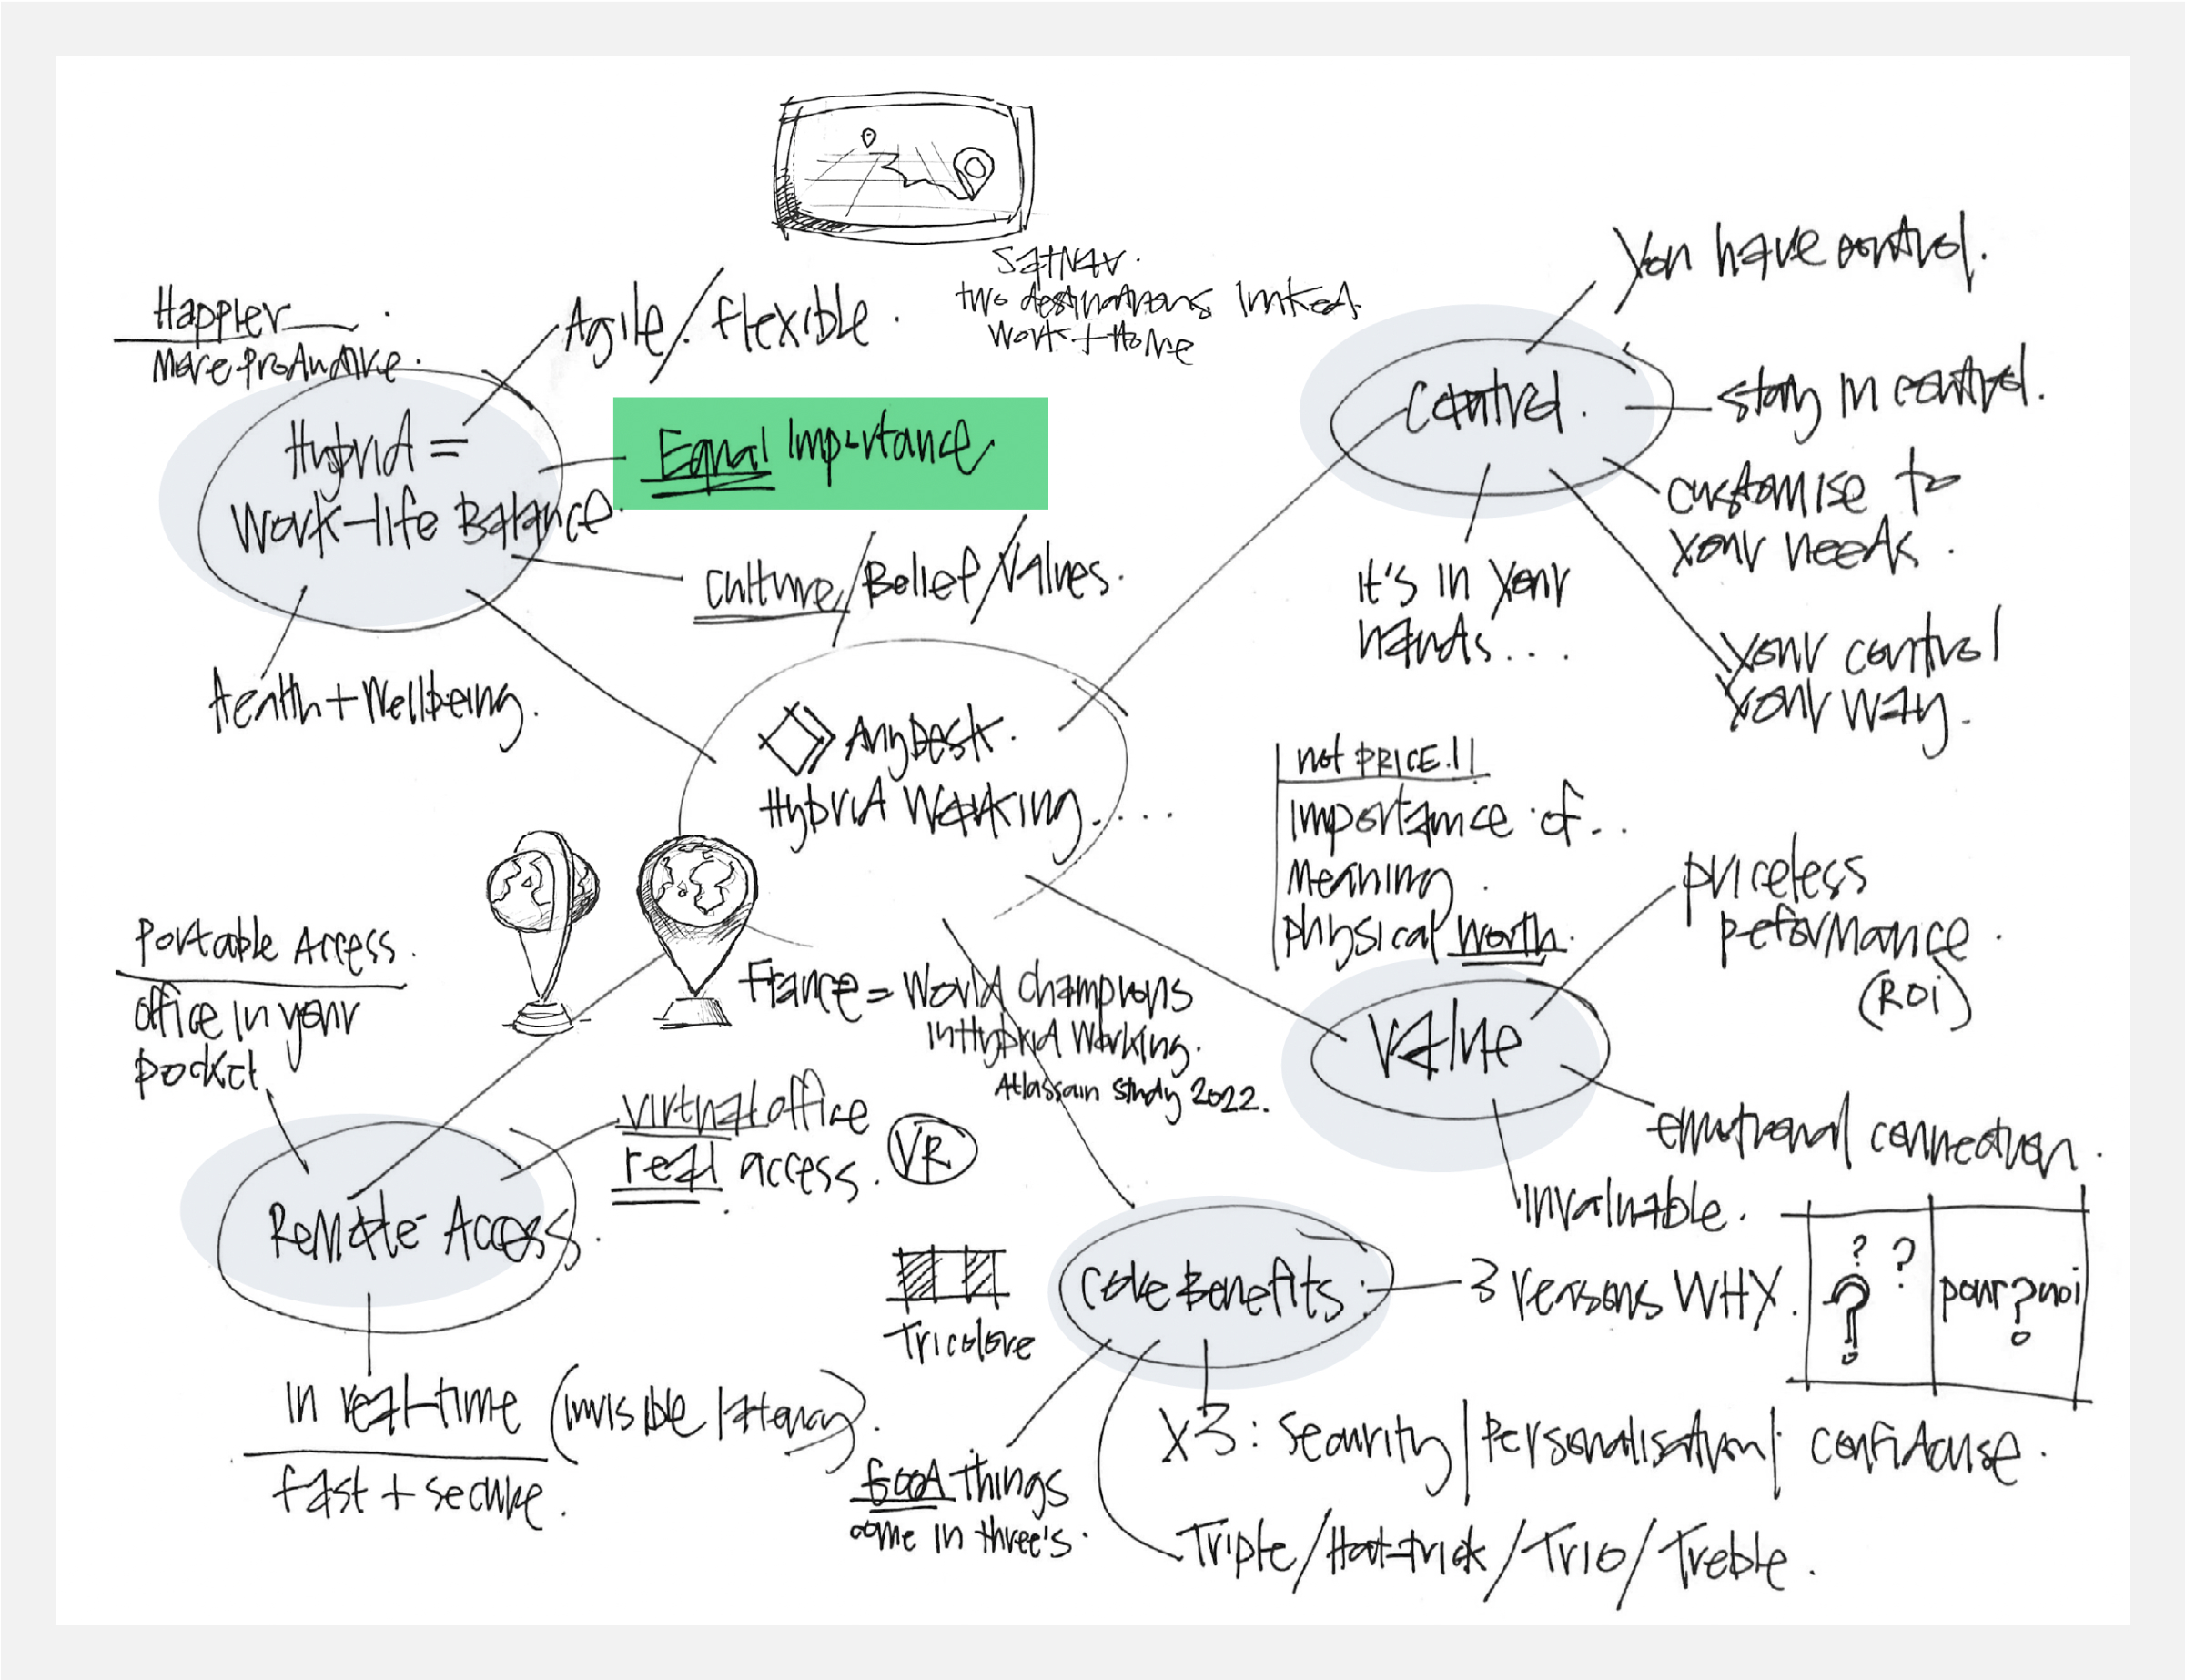 SatNav.
two destinations linked.
Work + Home
Happier
More productive.
Agile / flexible.
Hybrid =
Work-life Balance.
Equal Importance
Culture / Belief / Values.
Health + Wellbeing.
You have control.
Control.
stay in control.
customise to
your needs.
It's in your
hands...
your control
your way.
AnyDesk.
Hybrid Working....
not PRICE!!
Importance of..
Meaning.
physical worth.
priceless
peformance.
(ROi)
Value
emotional connection.
Invaluable.
France = World Champions
in Hybrid Working.
Atlassain Study 2022.
Portable Access.
office in your
pocket
virtual office
real access.
VR
Remote Access.
in real-time (invisible latency).
fast + secure.
Tricolore
Core Benefits:
3 reasons WHY.
? ? ?
pour?uoi
X3: Security | Personalisation | Confidence.
Good things
come in three's.
Triple / Hat-trick / Trio / Treble.